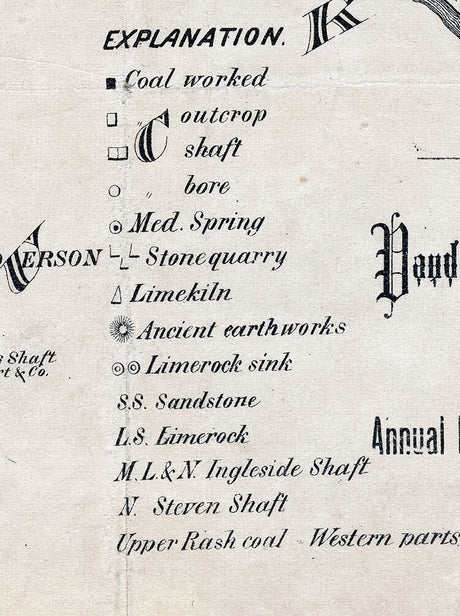 EXPLANATION.
K
Coal worked
" outcrop
C
shaft
" bore
Med. Spring
ERSON
Stone quarry
Limekiln
Ancient earthworks
Shaft
& Co.
Limerock sink
S.S. Sandstone
L.S. Limerock
Annual
M.L.& N. Ingleside Shaft
N. Steven Shaft
Upper Rash coal - Western parts